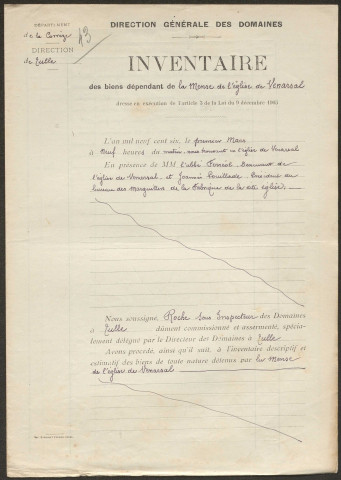 DÉPARTEMENT
de la Corrèze
DIRECTION
de Tulle
43
DIRECTION GÉNÉRALE DES DOMAINES
INVENTAIRE
des biens dépendant de la Mense de l'église de Venarsal
dressé en exécution de l'article 3 de la Loi du 9 décembre 1905
L'an mil neuf cent six, le premier Mars
à neuf heures du matin, nous trouvant en l'église de Venarsal
En présence de MM. l'abbé Desservant de
l'église de Venarsal, et Président du
bureau des Marguilliers de la Fabrique de la dite église.
Nous soussigné, Roche Sous Inspecteur des Domaines
à Tulle dûment commissionné et assermenté, spécia-
lement délégué par le Directeur des Domaines à Tulle
Avons procédé, ainsi qu'il suit, à l'inventaire descriptif et
estimatif des biens de toute nature détenus par la Mense
de l'église de Venarsal